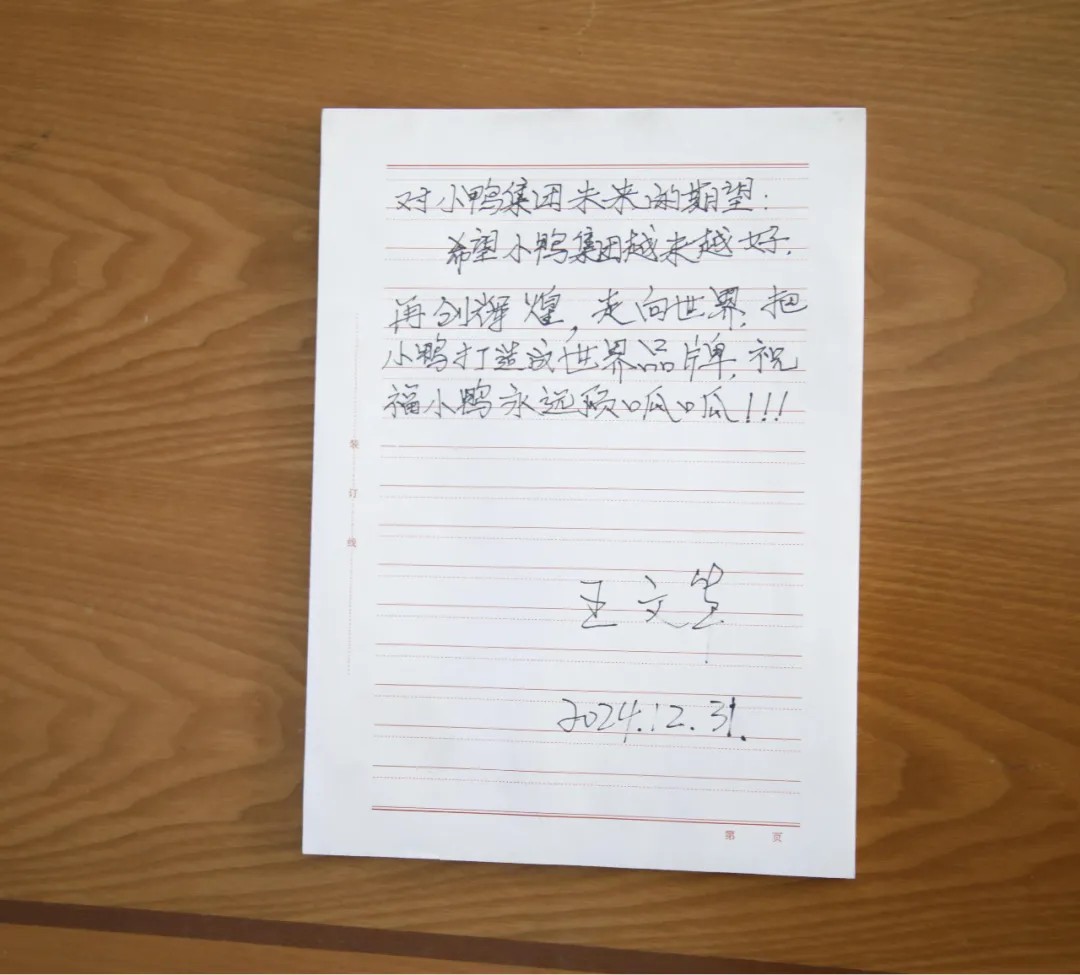 对小鸭集团未来的期望:
希望小鸭集团越来越好.
再创辉煌,走向世界,把
小鸭打造成世界品牌,祝
福小鸭永远顶呱呱!!!
装
订
线
王文
2024.12.31.
第 页